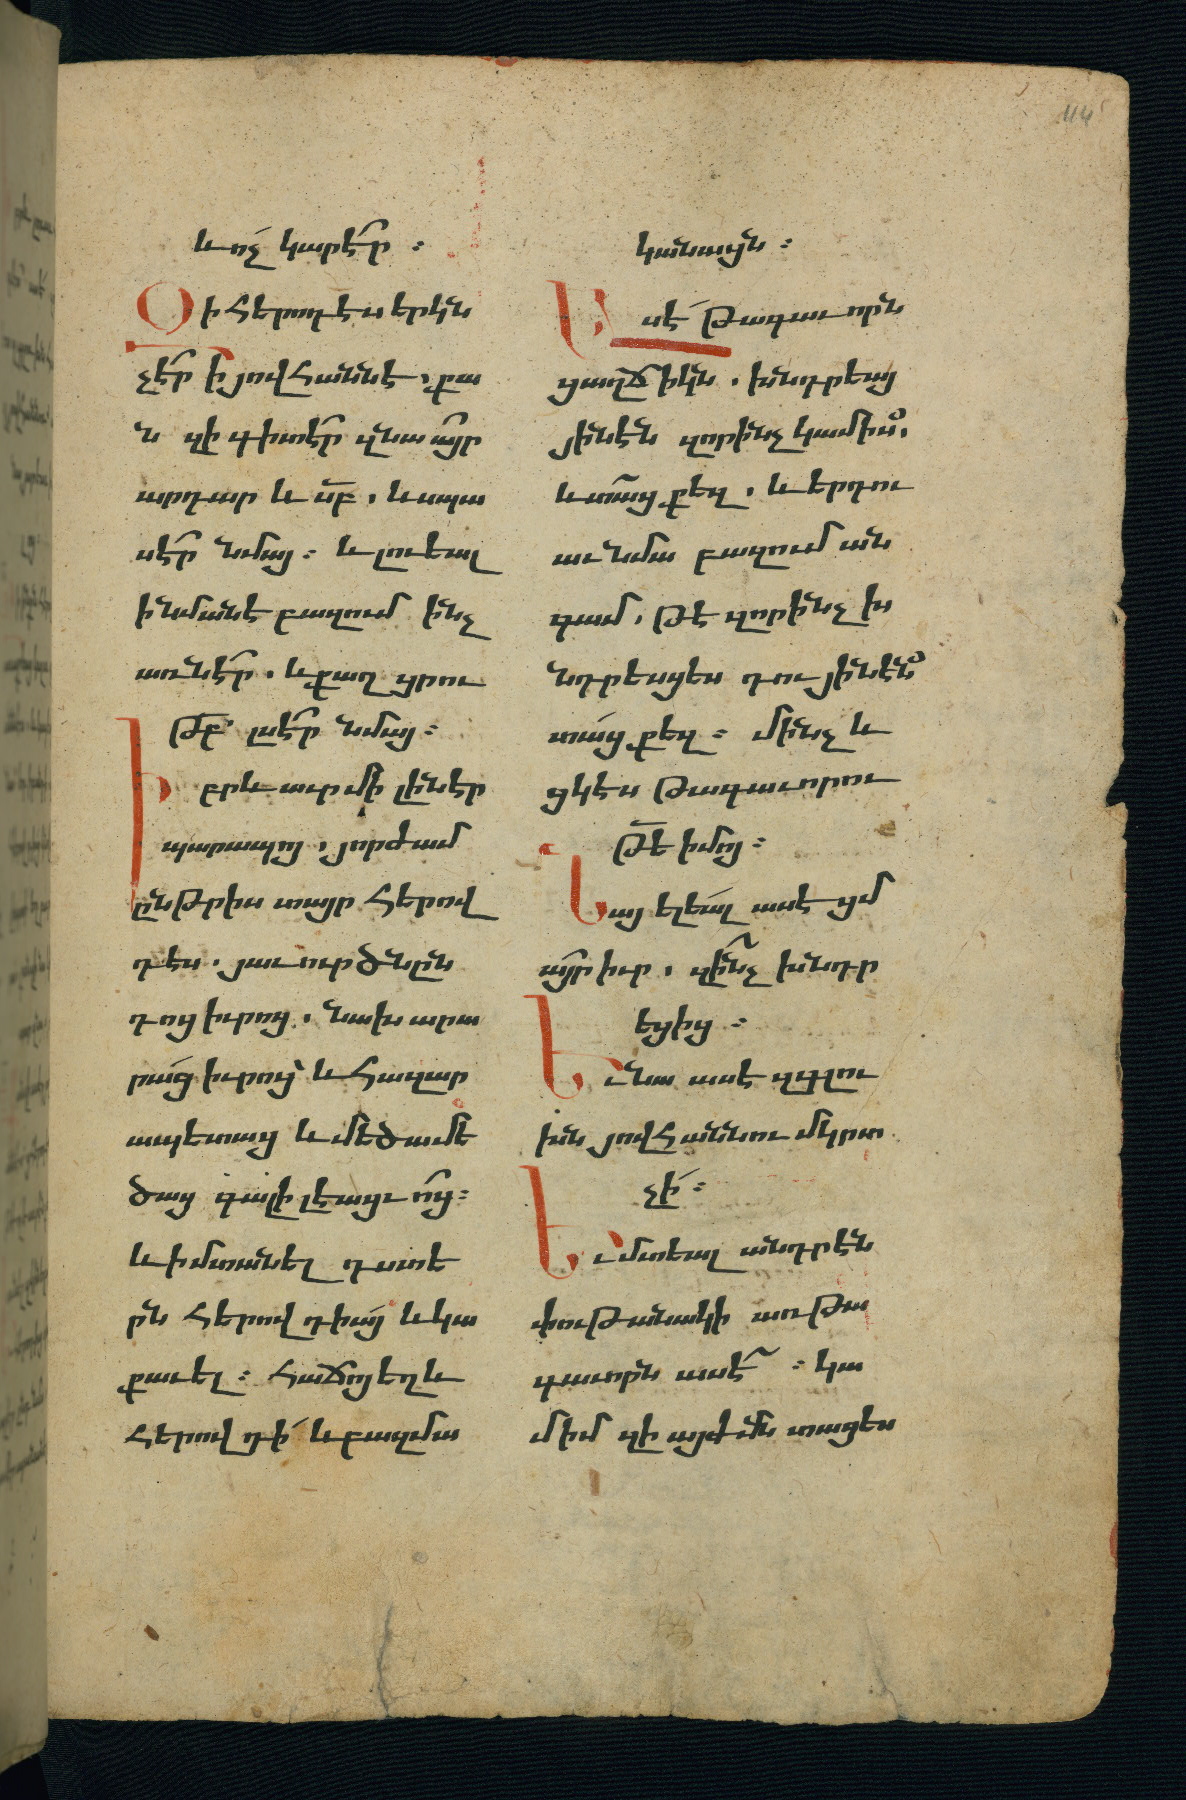 114
և ոչ կարէր ։
Զի Հերովդէս երկն
չէր ի յովհաննէ, քա
ն զի գիտէր զնա այր
արդար և սբ, և սպա
սէր նմայ ։ և լուեալ
ի նմանէ բազում ինչ
առնէր, և քաղցրու
թբ լսէր նմայ ։
Իբրև աւր մի լինէր
պարապոյ, յորժամ
ընթրիս տայր Հերով
դէս. յաւուր ծնըն
դոց իւրոց, նախարա
րաց իւրոց՝ և հազար
ապետաց և մեծամե
ծաց գալիլէացւոց ։
և ի մտանել դստե
րն հերովդիայ և կա
քաւել ։ հաճոյ եղև
հերովդի և բազմա
կանացն ։
Ասէ թագաւորն
ցաղջիկն, խնդրեայ
յինէն զորինչ կամիս,
և տաց քեզ, և երդու
աւ նմա բազում ան
գամ, թէ զորինչ խ
նդրեսցես դու յինէն
տաց քեզ ։ մինչև
ցկէս թագաւորու
թե իմոյ ։
Նայ ելեալ ասէ ցմ
այր իւր, զի՞նչ խնդր
եցից ։
Եւ նա ասէ զգլու
խն յովհաննու մկրտ
չի ։
Եւ մտեալ անդրէն
փութանակի առ թա
գաւորն ասէ ։ կա
միմ զի այժմ տացես